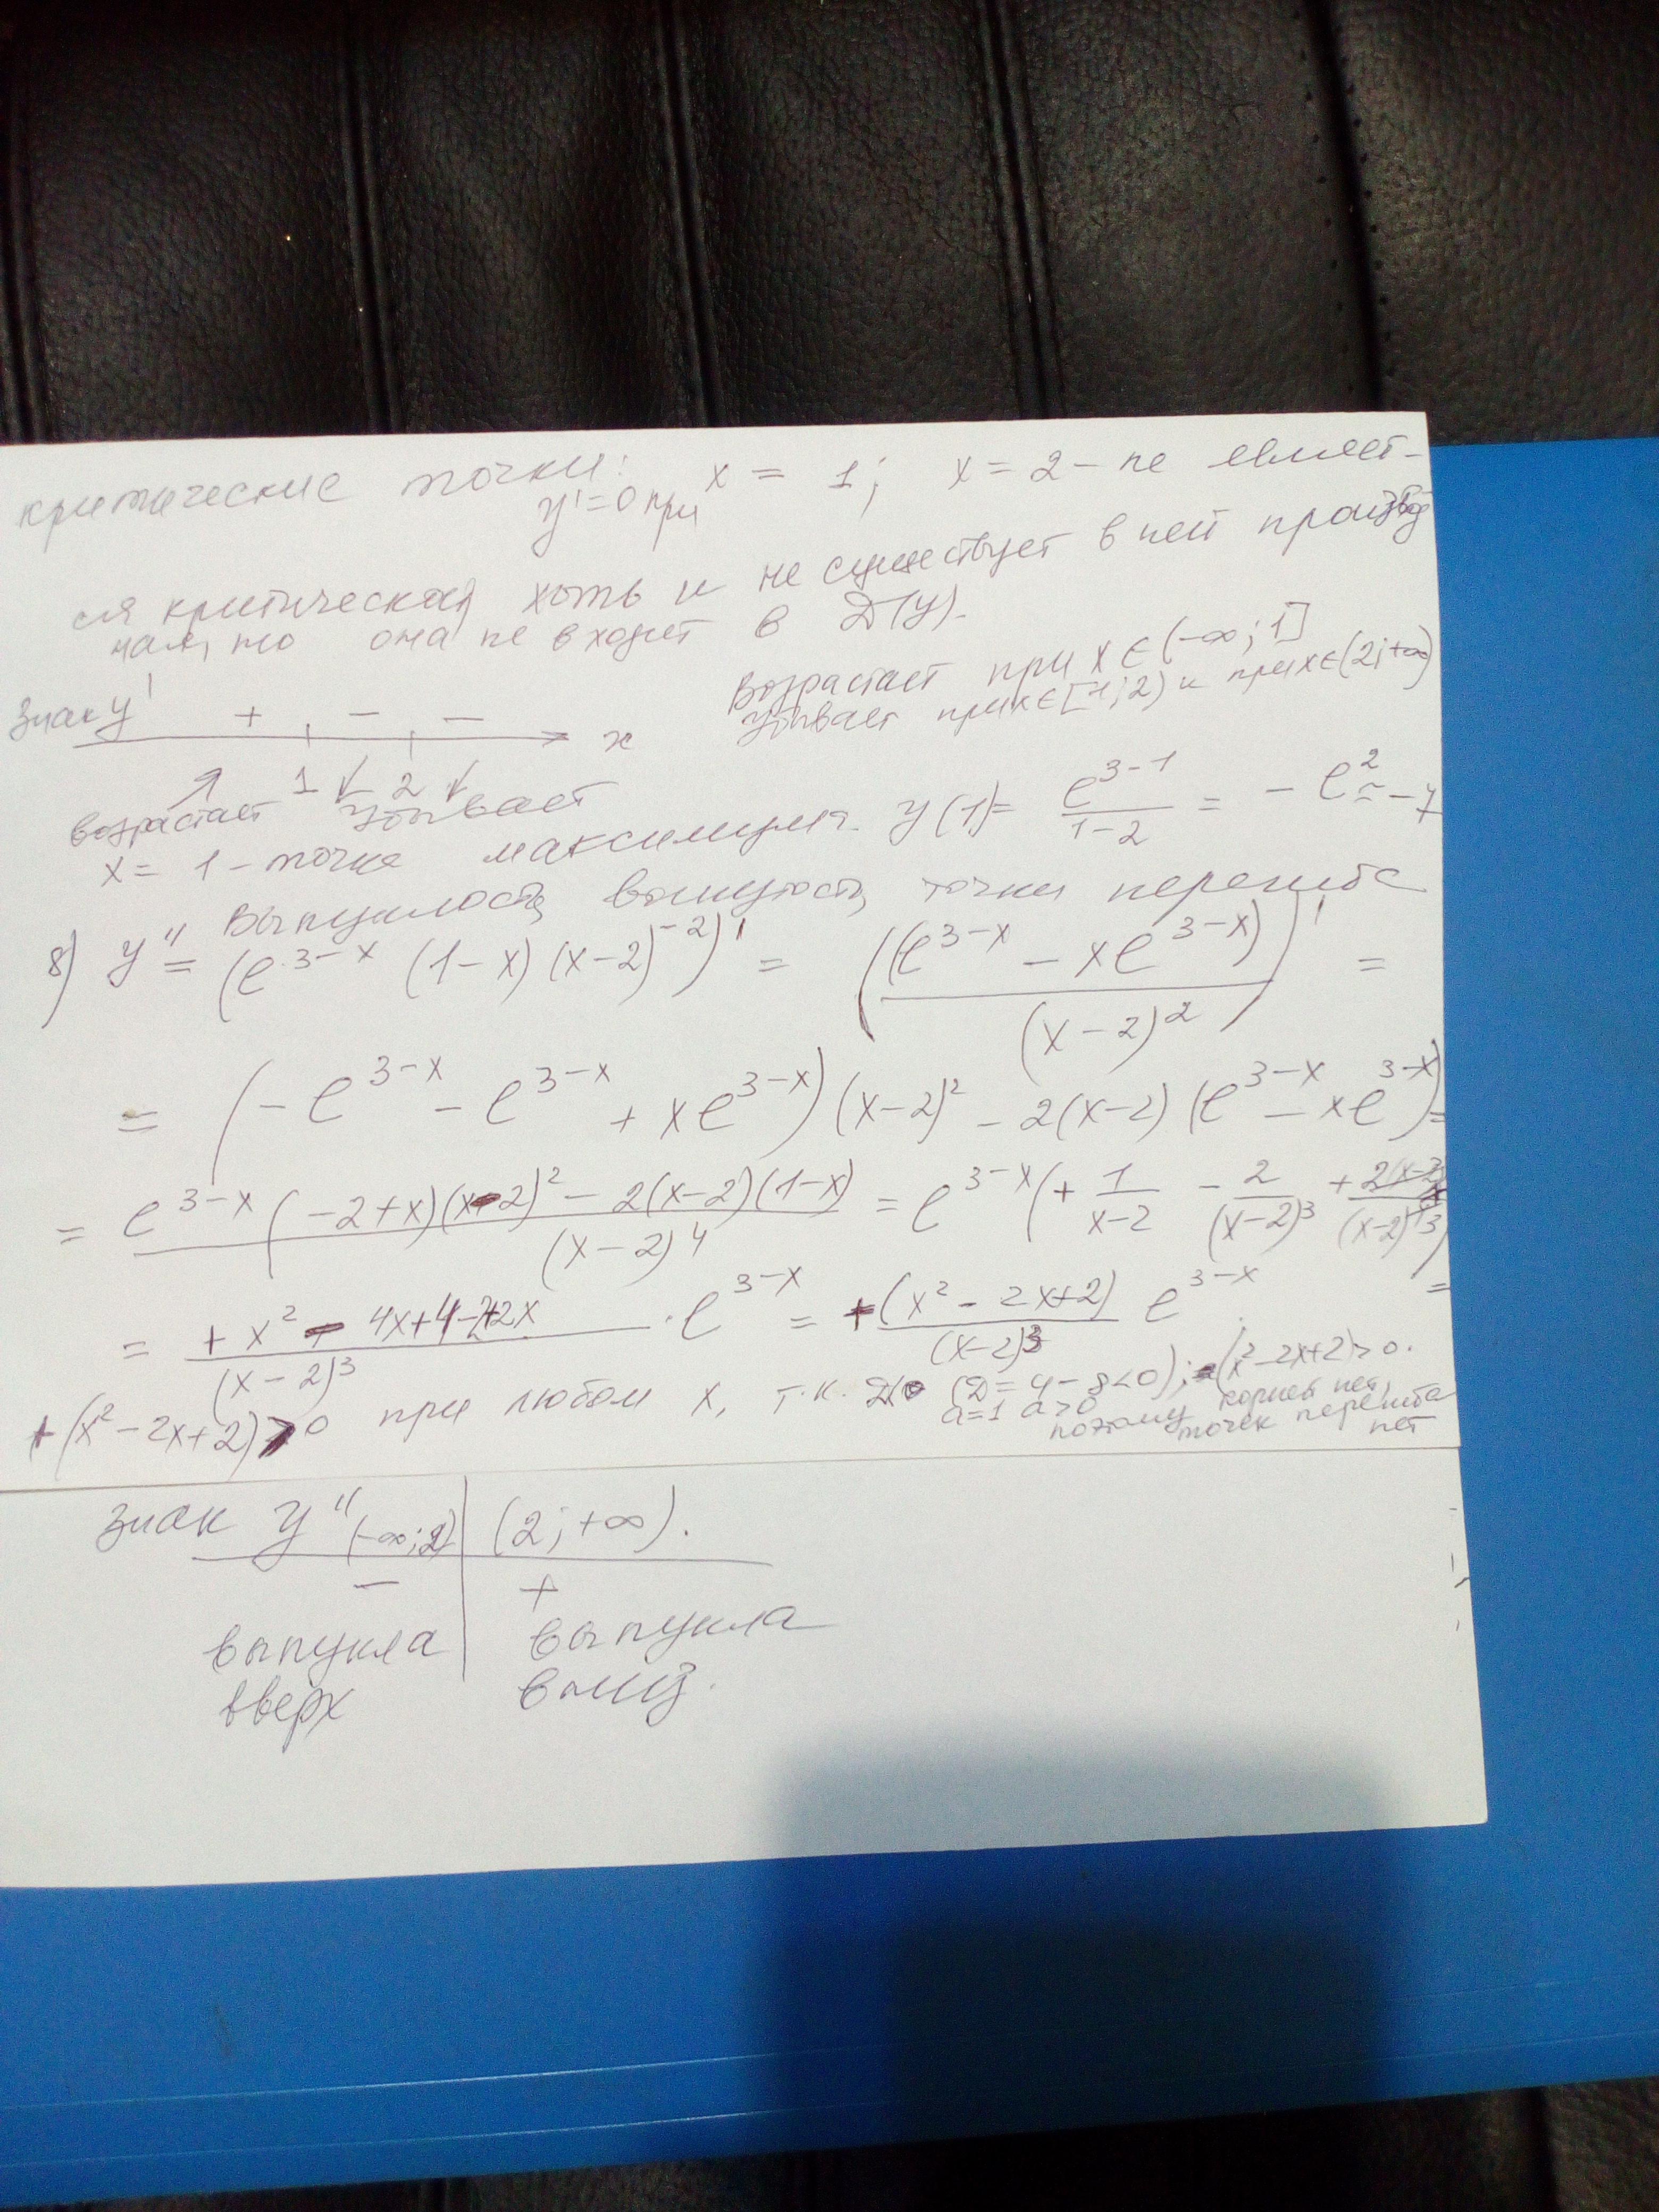 критические точки: x = 1; x = 2 – не являет-
y' = 0 при
ся критической, хоть и не существует в ней производ
ная, то она не входит в D(y).
возрастает при x ∈ (-∞; 1]
убывает при x ∈ [1; 2) и при x ∈ (2; +∞)
знак y' + – – x
1 2
возрастает убывает
x = 1 – точка максимума. y(1) = e^{3-1}/(1-2) = -e^2 ≈ -7
8) y'' выпуклость, вогнутость, точки перегиба
y'' = (e^{3-x} (1-x) (x-2)^{-2})' = ((e^{3-x} - xe^{3-x})/(x-2)^2)' =
= (-e^{3-x} - e^{3-x} + xe^{3-x})(x-2)^2 - 2(x-2)(e^{3-x} - xe^{3-x}) =
= e^{3-x}(-2+x)(x-2)^2 - 2(x-2)(1-x)/(x-2)^4 = e^{3-x}(+ 1/(x-2) - 2/(x-2)^3 +
= (+x^2 - 4x+4-2+2x)/(x-2)^3 · e^{3-x} = +(x^2 - 2x+2)/(x-2)^3 e^{3-x};
+(x^2 - 2x+2) > 0 при любом x, т.к. D<0 (D = 4 - 8 < 0); (x^2 - 2x+2) > 0.
a=1 a>0 корней нет,
поэтому точек перегиба
нет
знак y'' (-∞; 2) (2; +∞).
– +
выпукла выпукла
вверх вниз.